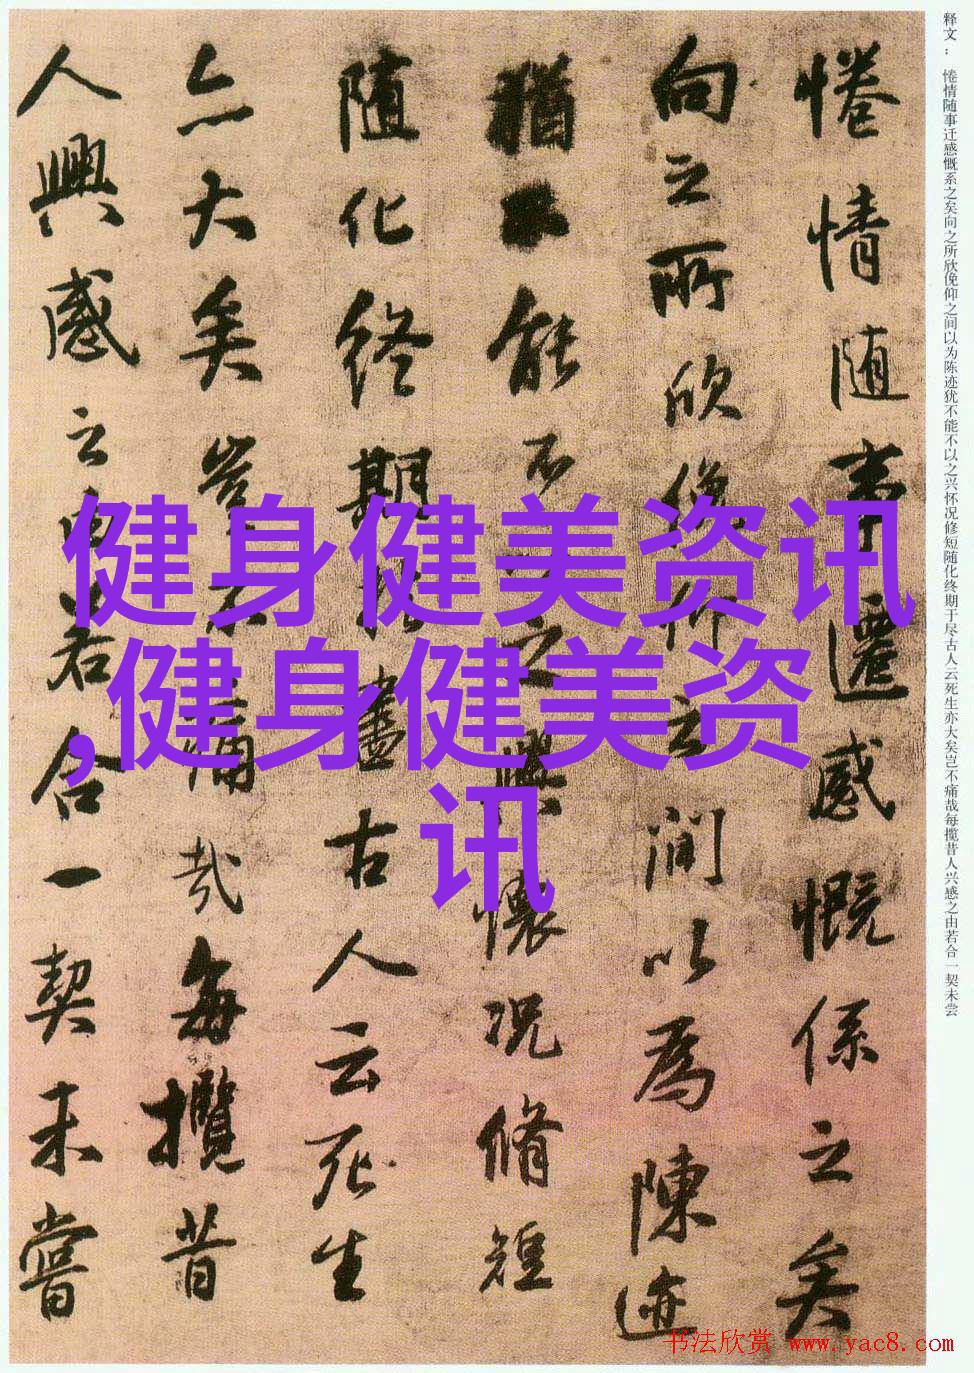 惓情随事遷感慨係之矣
向之所欣俛仰之間以為陳迹
猶不能不以之興懷況脩短
随化終期於盡古人云死生
亦大矣豈不痛哉每攬昔
人興感之由若合一契未嘗
释文：惓情随事迁感慨系之矣向之所欣俛仰之间以为陈迹犹不能不以之兴怀况修短随化终期于尽古人云死生亦大矣岂不痛哉每揽昔人兴感之由若合一契未尝
健身健美资讯
,健身健美资
讯
书法欣赏 www.yac8.com